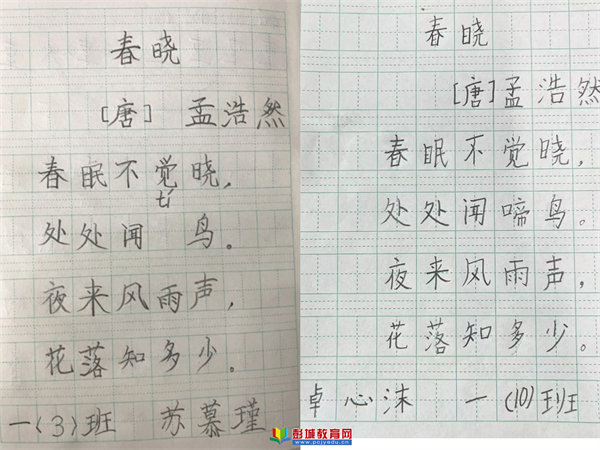 春晓
[唐] 孟浩然
春眠不觉晓,
tí
处处闻 鸟。
夜来风雨声,
花落知多少。
一(3)班 苏慕瑾
春晓
[唐]孟浩然
春眠不觉晓,
处处闻啼鸟。
夜来风雨声,
花落知多少。
卓心沫 一(10)班
彭城教育网
www.pcjyedu.cn